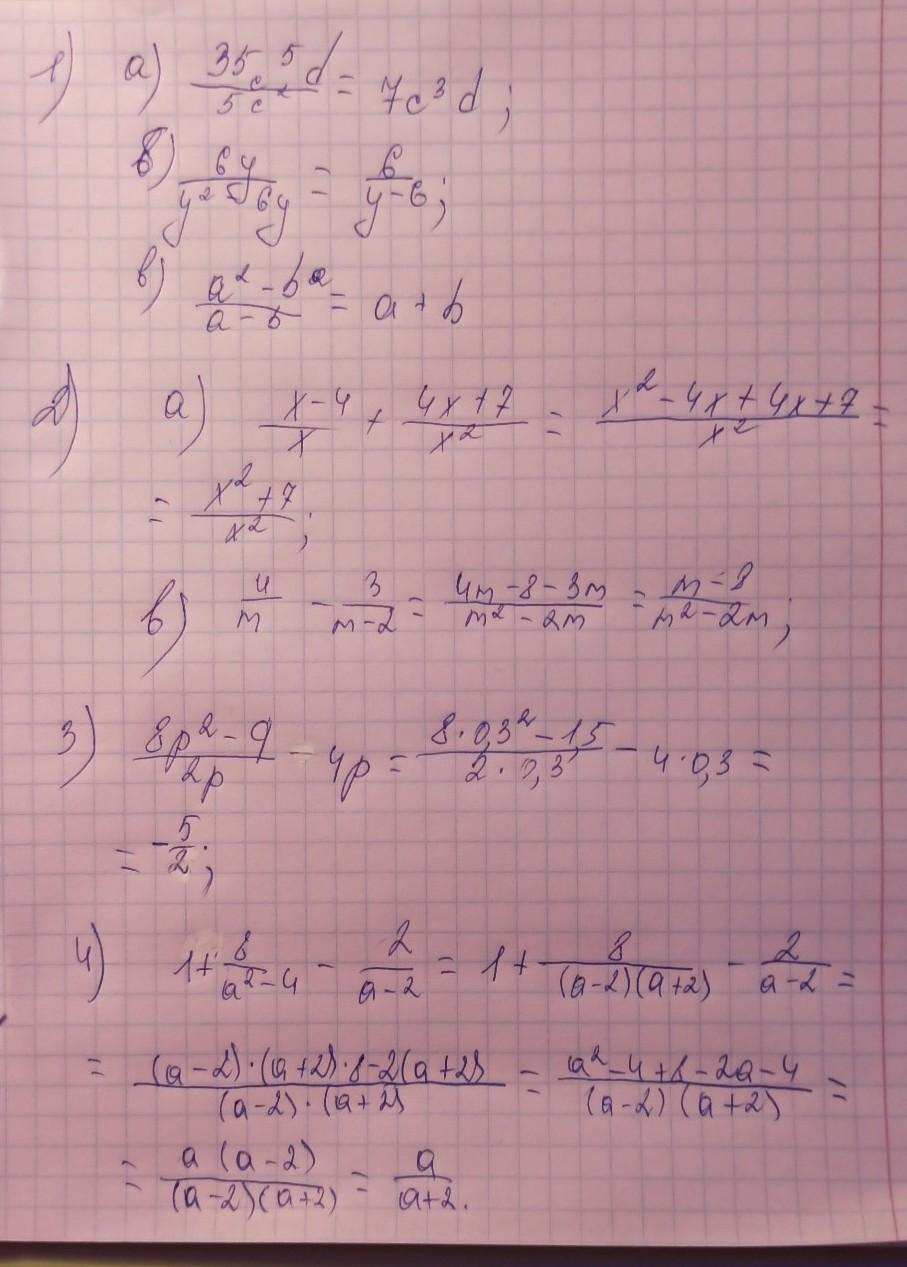 1) а) 35c⁵d/5c² = 7c³d;
б) 6y/y²-6y = 6/y-6;
в) a²-b²/a-b = a+b
2) а) x-4/x + 4x+7/x² = x²-4x+4x+7/x² =
= x²+7/x²;
в) 4/m - 3/m-2 = 4m-8-3m/m²-2m = m-8/m²-2m;
3) 8p²-q/2p - 4p = 8·0,3²-1,5/2·0,3 - 4·0,3 =
= -5/2;
4) 1+8/a²-4 - 2/a-2 = 1+8/(a-2)(a+2) - 2/a-2 =
= (a-2)·(a+2)·8-2(a+2)/(a-2)·(a+2) = a²-4+8-2a-4/(a-2)(a+2) =
= a(a-2)/(a-2)(a+2) = a/a+2.